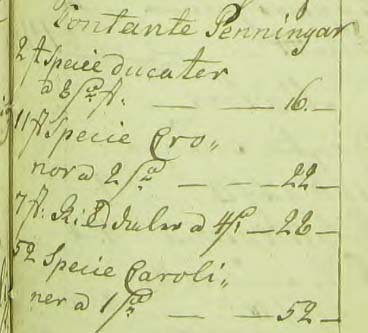 Contante Penningar
2 st Specie ducater
a 8 sr st. — — 16.—
11 st Specie Cro„
nor a 2 sr — — 22—
7 st. R: daler a 4 sr —28—
52 Specie Caroli„
ner a 1 sr — — 52—